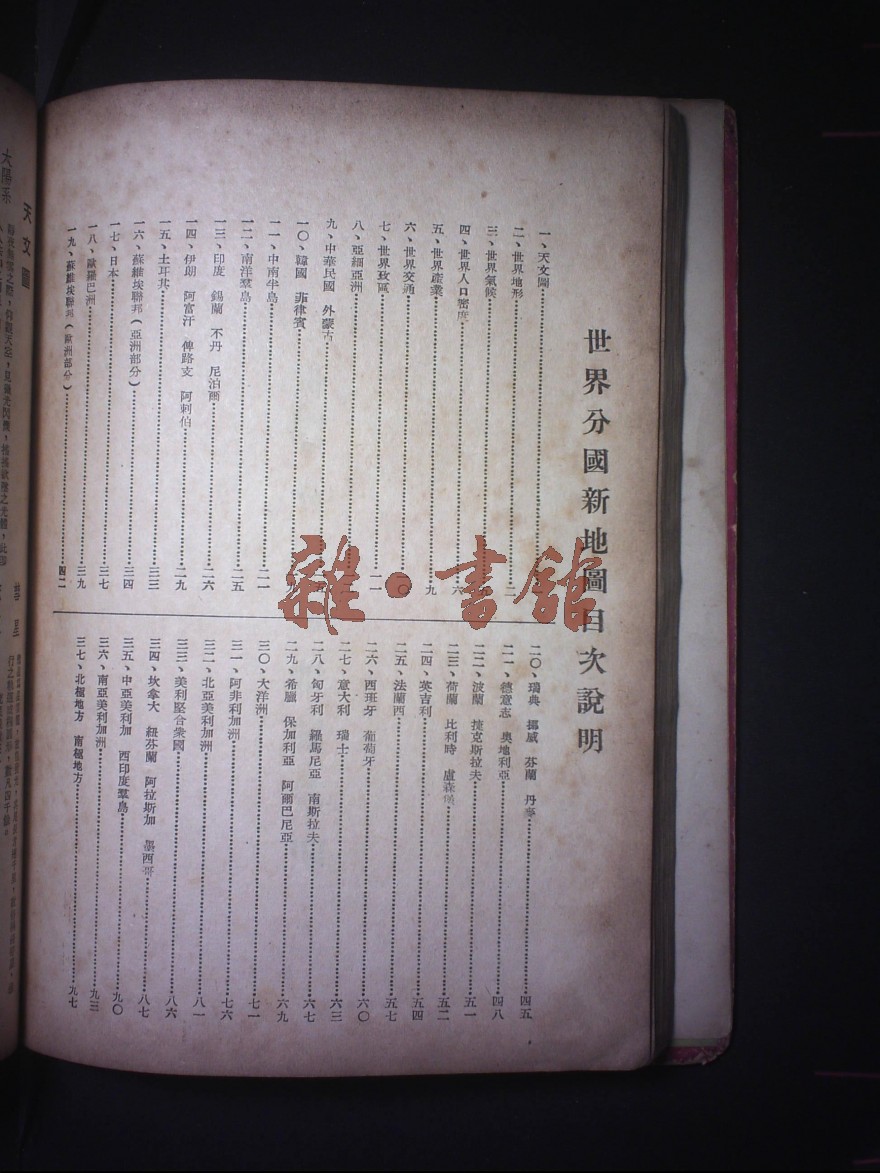 世界分國新地圖目次說明
一、天文圖
二、世界地形 二
三、世界氣候
四、世界人口密度 六
五、世界產業 九
六、世界交通 一〇
七、世界政區 一一
八、亞細亞洲
九、中華民國 外蒙古
一〇、韓國 菲律賓
一一、中南半島 二一
一二、南洋羣島 二五
一三、印度 錫蘭 不丹 尼泊爾 二六
一四、伊朗 阿富汗 俾路支 阿剌伯 二九
一五、土耳其 三三
一六、蘇維埃聯邦（亞洲部分） 三四
一七、日本 三七
一八、歐羅巴洲 三九
一九、蘇維埃聯邦（歐洲部分） 四二
二〇、瑞典 挪威 芬蘭 丹麥 四五
二一、德意志 奧地利亞 四八
二二、波蘭 捷克斯拉夫 五一
二三、荷蘭 比利時 盧森堡 五二
二四、英吉利 五四
二五、法蘭西 五七
二六、西班牙 葡萄牙 六〇
二七、意大利 瑞士 六三
二八、匈牙利 羅馬尼亞 南斯拉夫 六七
二九、希臘 保加利亞 阿爾巴尼亞 六九
三〇、大洋洲 七一
三一、阿非利加洲 七六
三二、北亞美利加洲 八一
三三、美利堅合衆國 八六
三四、坎拿大 紐芬蘭 阿拉斯加 墨西哥 八七
三五、中亞美利加 西印度羣島 九〇
三六、南亞美利加洲 九三
三七、北極地方 南極地方 九七
天文圖
太陽系
雜·書館